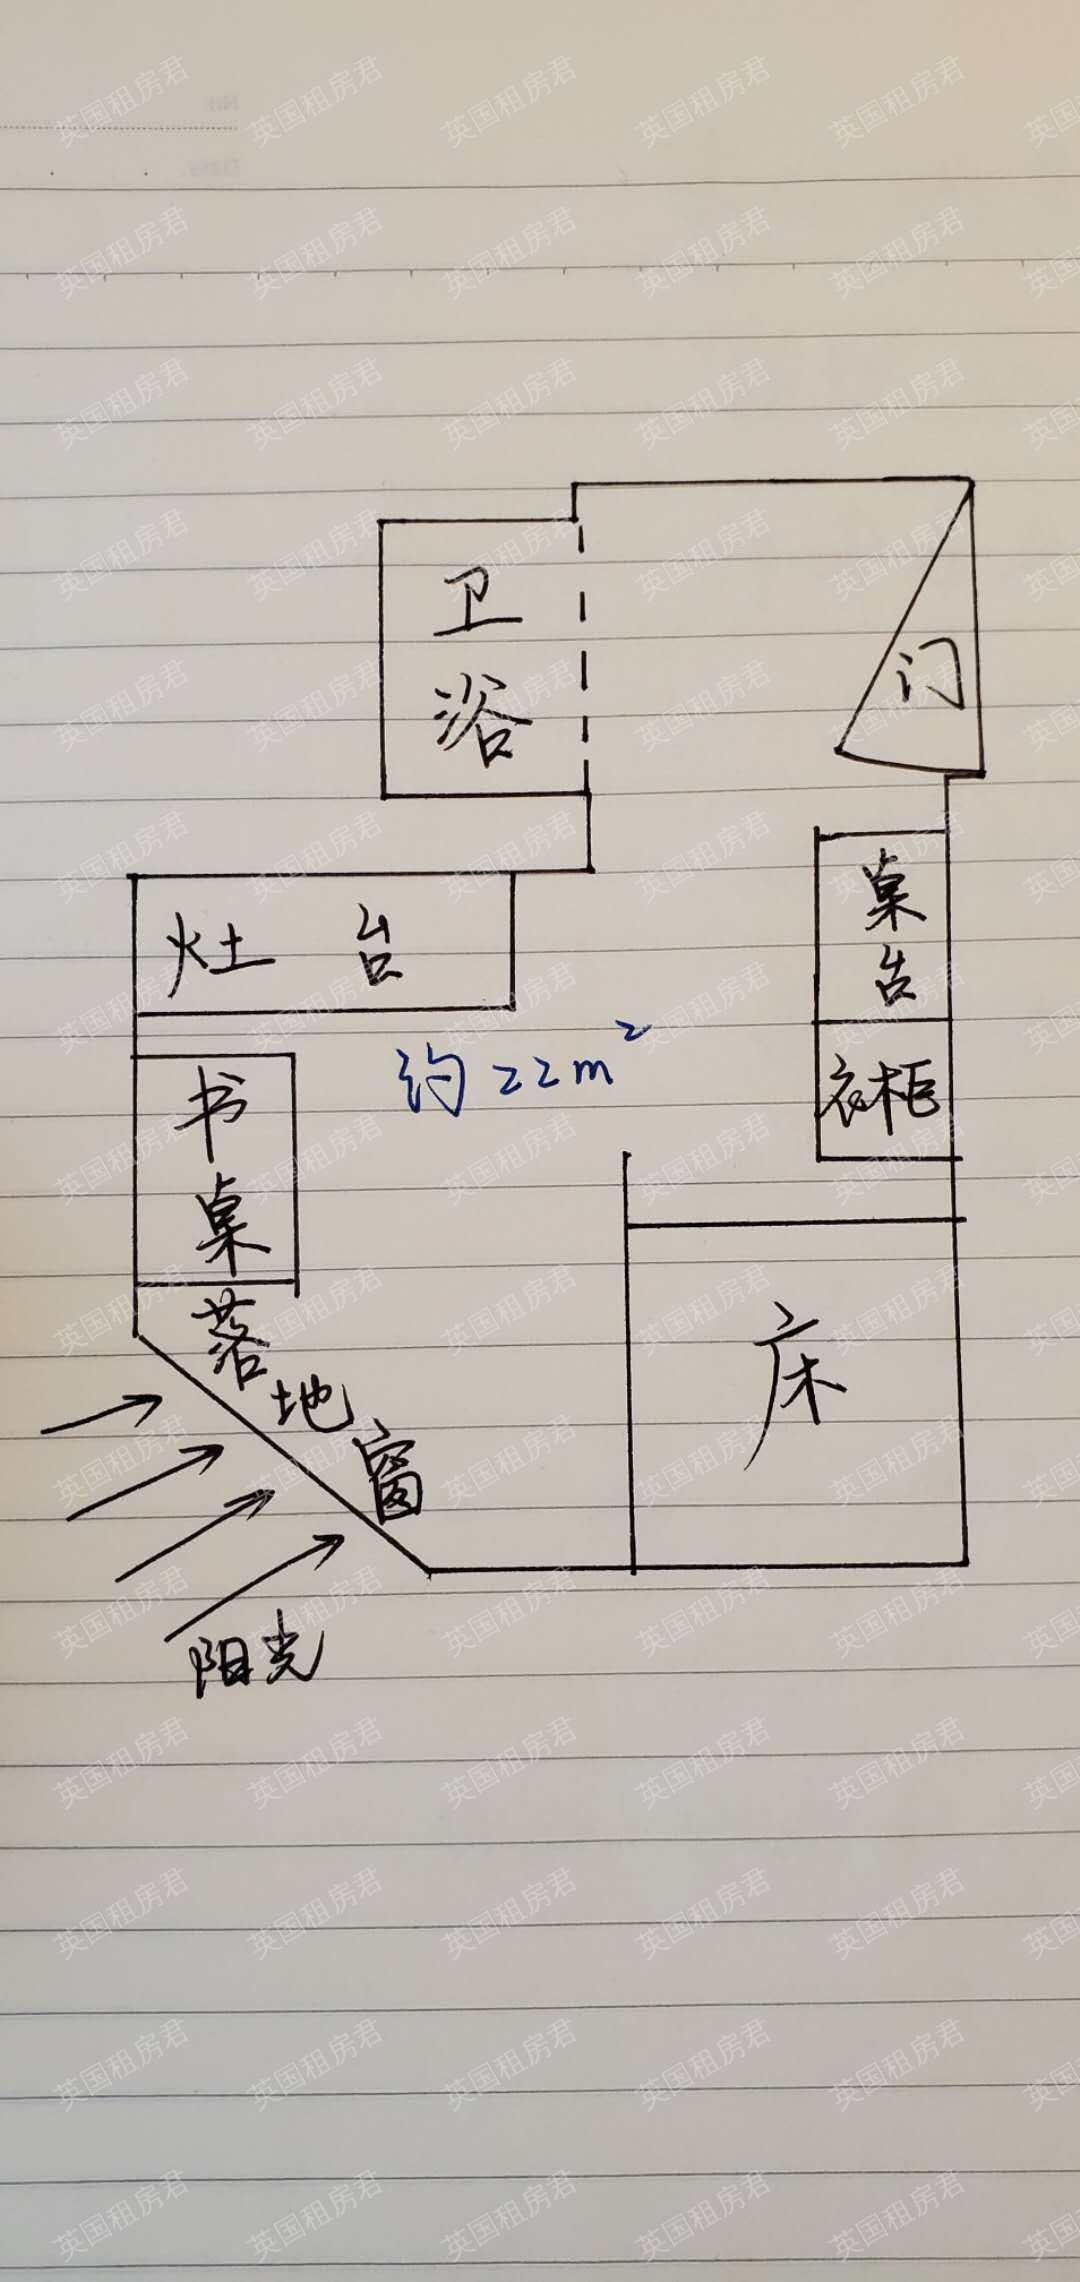 卫
浴
门
灶台
桌
台
衣柜
约22m²
书
桌
床
落
地
窗
阳光
英国租房君